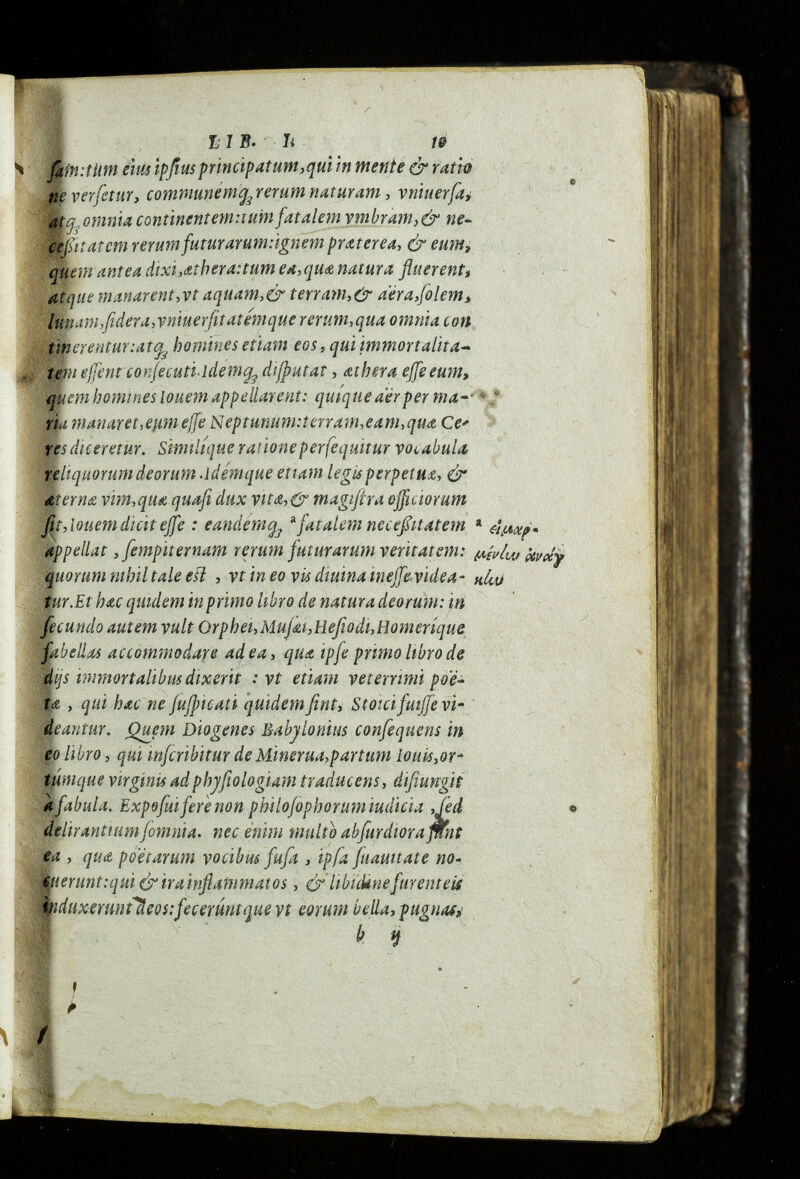 LIB. I. 10
sam:tùm eius ipsius principatum,qui in mente & ratio
ne versetur, communémq; rerum naturam, vniuersa,
atq; omnia continentem:tum fatalem vmbram,& ne-
cessitatem rerum futurarum:ignem præterea, & eum,
quem antea dixi,æthera:tum ea,quæ natura fluerent,
atque manarent,vt aquam,& terram,& aëra,solem,
lunam,sidera,vniuersitatémque rerum,qua omnia con
tinerentur:atq; homines etiam eos, qui immortalita-
tem essent consecuti.Idemq; disputat, æthera esse eum,
quem homines Iouem appellarent: quique aër per ma-
ria manaret,eum esse Neptunum:terram,eam,quæ Ce-
res diceretur. Similíque ratione persequitur vocabula
reliquorum deorum.Idémque etiam legis perpetuæ, &
æternæ vim,quæ quasi dux vitæ,& magistra officiorum
sit,Iouem dicit esse : eandémq; *fatalem necessitatem
appellat, sempiternam rerum futurarum veritatem:
quorum nihil tale est, vt in eo vis diuina inesse videa-
tur.Et hæc quidem in primo libro de natura deorum: in
secundo autem vult Orphei,Musæi,Hesiodi,Homeríque
fabellas accommodare ad ea, quæ ipse primo libro de
dijs immortalibus dixerit : vt etiam veterrimi poë-
tæ, qui hæc ne suspicati quidem sint, Stoici fuisse vi-
deantur. Quem Diogenes Babylonius consequens in
eo libro, qui inscribitur de Minerua,partum Iouis,or-
túmque virginis ad physiologiam traducens, disiungit
à fabula. Exposui ferè non philosophorum iudicia, sed
delirantium somnia. nec enim multò absurdiora sunt
ea, quæ poëtarum vocibus fusa, ipsa suauitate no-
cuerunt:qui & ira inflammatos, & libidine furenteis
induxerunt deos:fecerúntque vt eorum bella, pugnas,
b ij
* εἱμαρ-
μένην ἀνάγ
κην